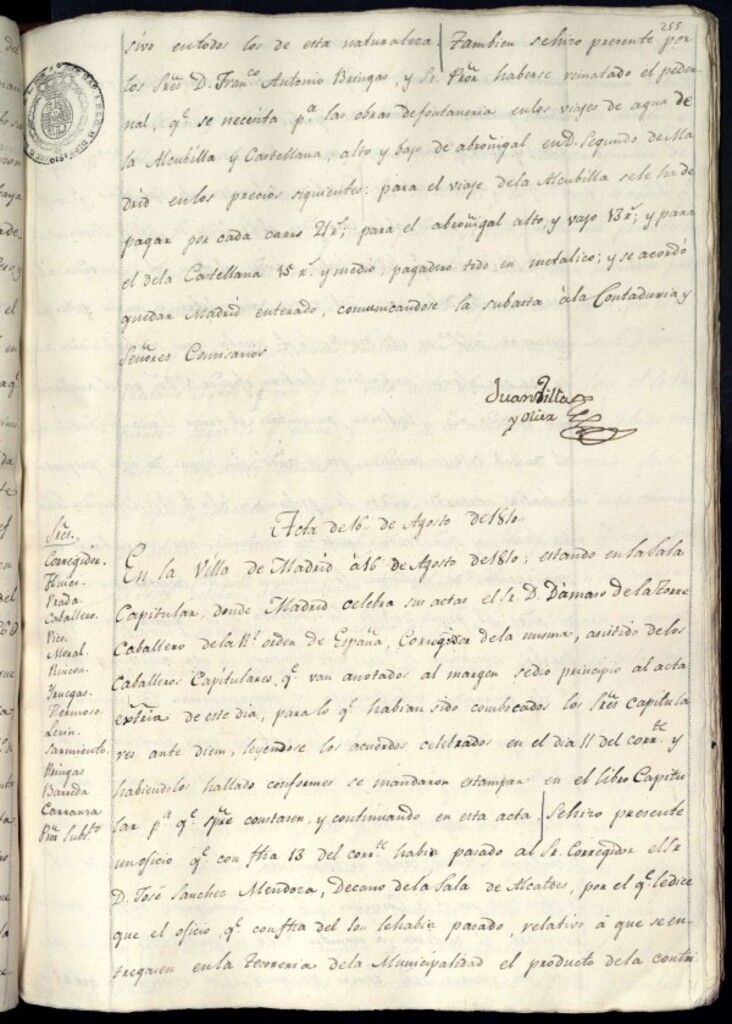 255
sivo en todos los de esta naturaleza | Tambien se hizo presente por
los Sres D. Franco Antonio Bringas, y Sr. Pror haberse rematado el peder-
nal, qe. se necesita pa. las obras de fontaneria en los viajes de agua de
la Alcubilla y Castellana, alto y bajo de abroñigal en D. Segundo de Ma
drid en los precios siguientes: para el viaje de la Alcubilla se le ha de
pagar por cada carro 21 rs; para el abroñigal alto, y vajo 13 rs; y para
el de la Castellana 15 rs. y medio, pagadero todo en metalico; y se acordó
quedar Madrid enterado, comunicandose la subasta à la Contaduria y
Señores Comisarios
Juan Villa
y Olier
Acta de 16 de Agosto de 1810
Sres.
Corregidor.
Prada.
Caballero.
Vico.
Moral.
Rincon.
Yruegas.
Hermoso.
Lerin.
Sarmiento.
Bringas
Barreda
Carranza
Pror Substo
En la Villa de Madrid à 16 de Agosto de 1810; estando en la Sala
Capitular, donde Madrid celebra sus actas el Sr. D. Dámaso de la Torre
Caballero de la Rl orden de España, Corregidor de la misma, asistido de los
Caballeros Capitulares, qe. van anotados al margen se dio principio al acta
extria de este dia, para lo qe. habian sido combocados los Sres Capitula
res ante diem, leyendose los acuerdos celebrados en el dia 11 del corrte. y
habiendolos hallado conformes se mandaron estampar en el libro Capitu
lar pa. qe. spre constasen, y continuando en esta acta | Se hizo presente
un oficio qe. con fha 13 del corrte habia pasado al Sr. Corregidor el Sr
D. José Sanchez Mendoza, Decano de la Sala de Alcaldes, por el qe. le dice
que el oficio, qe. con fha del le habia pasado, relativo á que se en-
tregasen en la Tesoreria de la Municipalidad el producto de la contri